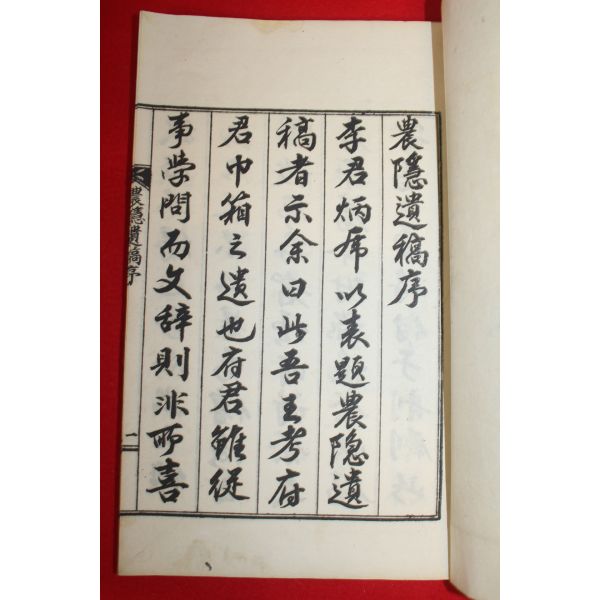 農隱遺稿序
李君炳席以表題農隐遺
稿者示余曰此吾王考府
君巾箱之遺也府君雖從
事學問而文辭則非所喜
農隱遺稿序
一